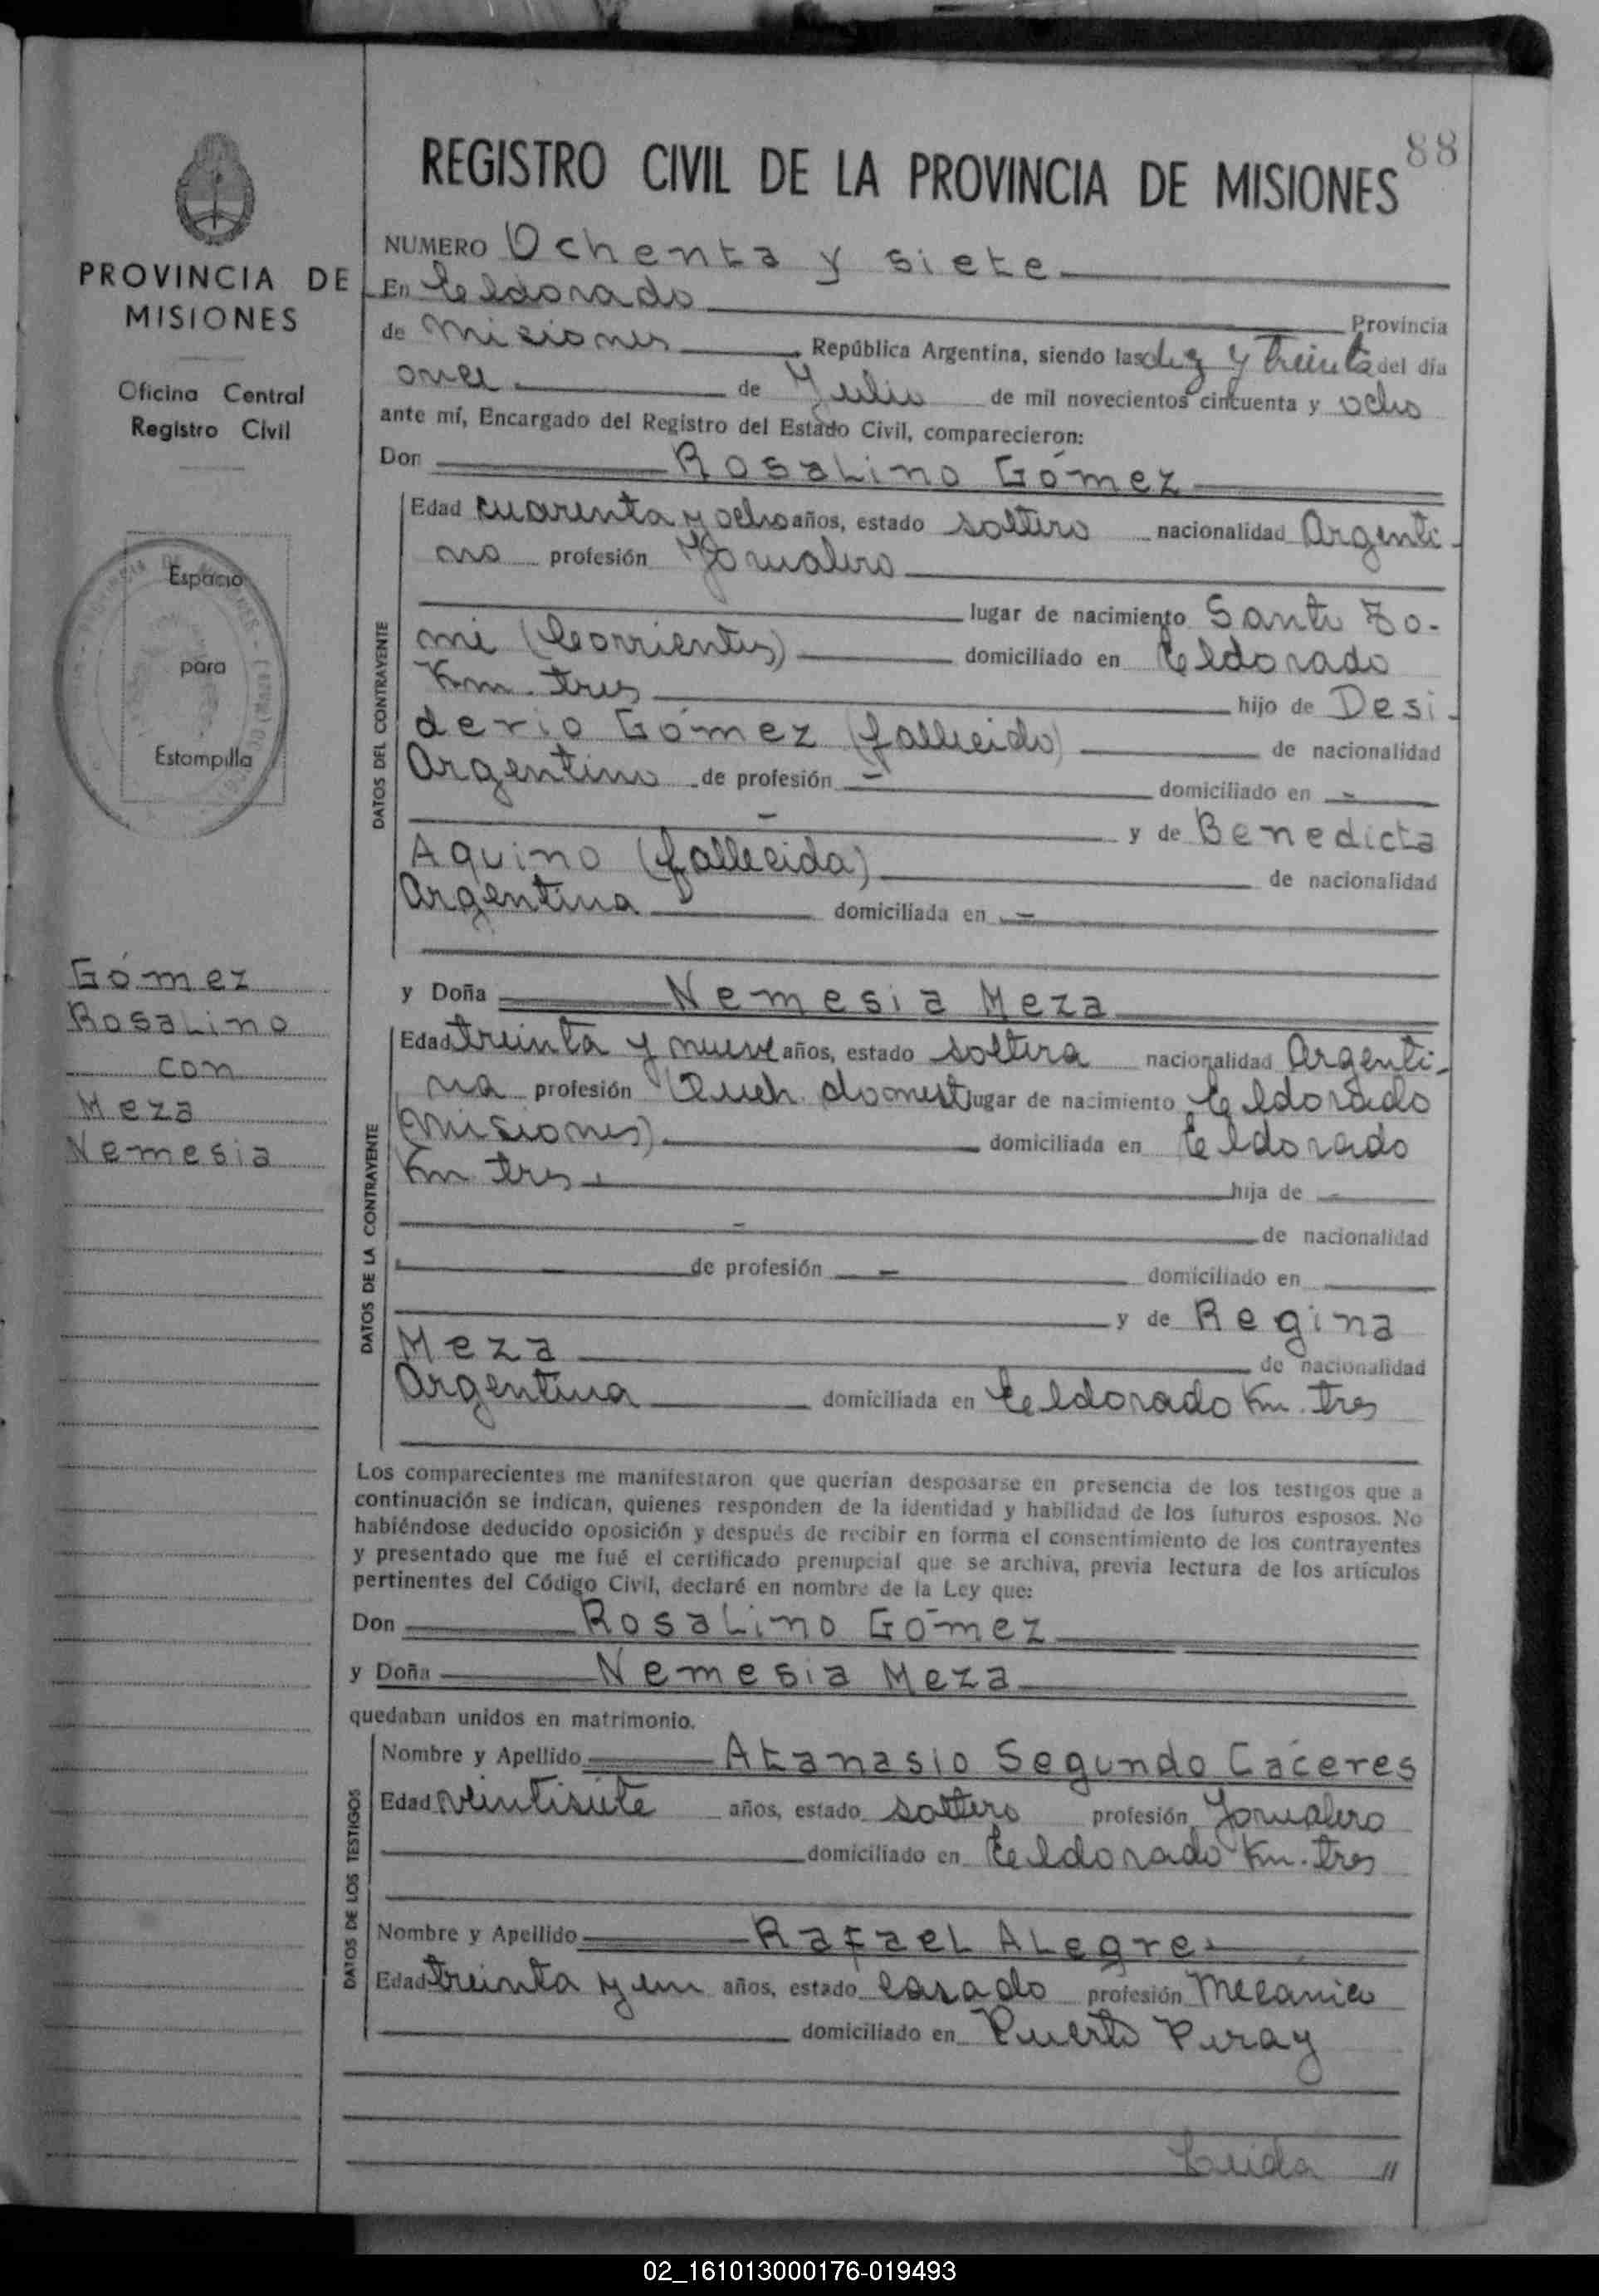 88
REGISTRO CIVIL DE LA PROVINCIA DE MISIONES
PROVINCIA DE
MISIONES
Oficina Central
Registro Civil
Espacio
para
Estampilla
Gómez
Rosalino
con
Meza
Nemesia
NUMERO Ochenta y siete
En Eldorado Provincia
de Misiones República Argentina, siendo las diez y treinta del día
once de Julio de mil novecientos cincuenta y ocho
ante mí, Encargado del Registro del Estado Civil, comparecieron:
Don Rosalino Gómez
DATOS DEL CONTRAYENTE
Edad cuarenta y ocho años, estado soltero nacionalidad Argenti-
no profesión Jornalero
lugar de nacimiento Santo To-
mé (Corrientes) domiciliado en Eldorado
Km. tres hijo de Desi-
derio Gómez (fallecido) de nacionalidad
Argentino de profesión - domiciliado en -
- y de Benedicta
Aquino (fallecida) de nacionalidad
Argentina domiciliada en -
y Doña Nemesia Meza
DATOS DE LA CONTRAYENTE
Edad treinta y nueve años, estado soltera nacionalidad Argenti-
na profesión Queh. domest lugar de nacimiento Eldorado
(Misiones) domiciliada en Eldorado
Km tres hija de -
- de nacionalidad
de profesión - domiciliado en
y de Regina
Meza de nacionalidad
Argentina domiciliada en Eldorado Km. tres
Los comparecientes me manifestaron que querían desposarse en presencia de los testigos que a
continuación se indican, quienes responden de la identidad y habilidad de los futuros esposos. No
habiéndose deducido oposición y después de recibir en forma el consentimiento de los contrayentes
y presentado que me fué el certificado prenupcial que se archiva, previa lectura de los artículos
pertinentes del Código Civil, declaré en nombre de la Ley que:
Don Rosalino Gómez
y Doña Nemesia Meza
quedaban unidos en matrimonio.
DATOS DE LOS TESTIGOS
Nombre y Apellido Atanasio Segundo Cáceres
Edad veintisiete años, estado soltero profesión Jornalero
domiciliado en Eldorado Km. tres
Nombre y Apellido Rafael Alegre
Edad treinta y un años, estado casado profesión Mecanico
domiciliado en Puerto Piray
Leida "
02_161013000176-019493